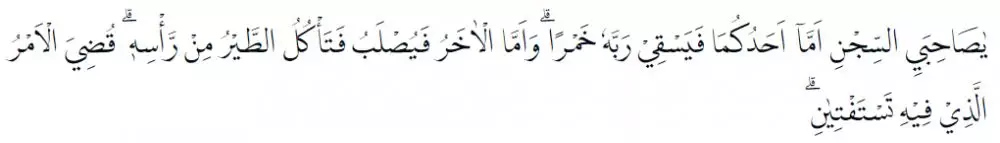 يٰصَاحِبَيِ السِّجْنِ اَمَّآ اَحَدُكُمَا فَيَسْقِيْ رَبَّهٗ خَمْرًا ۗوَاَمَّا الْاٰخَرُ فَيُصْلَبُ فَتَأْكُلُ الطَّيْرُ مِنْ رَّأْسِهٖ ۗ قُضِيَ الْاَمْرُ
الَّذِيْ فِيْهِ تَسْتَفْتِيٰنِ ۗ